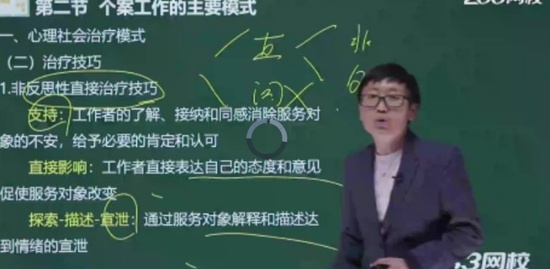 第二节 个案工作的主要模式
一、心理社会治疗模式
（二）治疗技巧
1.非反思性直接治疗技巧
支持：工作者的了解、接纳和同感消除服务对
象的不安，给予必要的肯定和认可
直接影响：工作者直接表达自己的态度和意见
促使服务对象改变
探索-描述-宣泄：通过服务对象解释和描述达
到情绪的宣泄
直
间
非
网校
.3网校